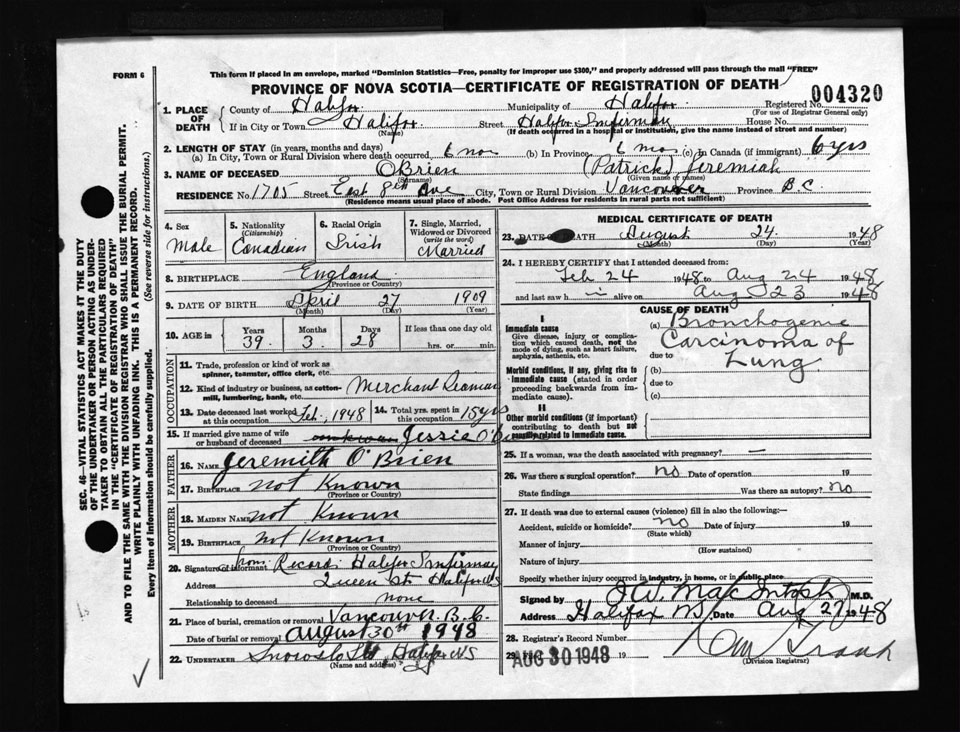 FORM 6
This form if placed in an envelope, marked "Dominion Statistics—Free, penalty for improper use $300," and properly addressed will pass through the mail "FREE"
PROVINCE OF NOVA SCOTIA—CERTIFICATE OF REGISTRATION OF DEATH
004320
1. PLACE OF DEATH
County of Halifax Municipality of Halifax Registered No.
(For use of Registrar General only)
If in City or Town Halifax Street Halifax Infirmary House No.
(Name) (If death occurred in a hospital or institution, give the name instead of street and number)
2. LENGTH OF STAY (in years, months and days)
(a) In City, Town or Rural Division where death occurred 6 mos (b) In Province 6 mos (c) In Canada (if immigrant) 6 yrs
3. NAME OF DECEASED O'Brien (Patrick) Jeremiah
(Surname) (Given name or names)
RESIDENCE No. 1705 Street East 8th Ave City, Town or Rural Division Vancouver Province B C
(Residence means usual place of abode. Post Office Address for residents in rural parts not sufficient)
4. Sex
Male
5. Nationality
(Citizenship)
Canadian
6. Racial Origin
Irish
7. Single, Married, Widowed or Divorced
(write the word)
Married
8. BIRTHPLACE England
(Province or Country)
9. DATE OF BIRTH April 27 1909
(Month) (Day) (Year)
10. AGE in
Years Months Days If less than one day old
39 3 28 hrs. or min.
OCCUPATION
11. Trade, profession or kind of work as
spinner, teamster, office clerk, etc.
12. Kind of industry or business, as cotton-
mill, lumbering, bank, etc. Merchant Seaman
13. Date deceased last worked at this occupation Feb. 1948
14. Total yrs. spent in this occupation 15 yrs
15. If married give name of wife
or husband of deceased Jessie
FATHER
16. Name Jeremith O'Brien
17. Birthplace Not Known
(Province or Country)
MOTHER
18. Maiden Name Not Known
19. Birthplace Not Known
(Province or Country)
20. Signature of informant from Records Halifax Infirmary
Address Queen St. Halifax NS
Relationship to deceased none
21. Place of burial, cremation or removal Vancouver B.C.
Date of burial or removal August 30th 1948
22. UNDERTAKER Halifax NS
(Name and address)
MEDICAL CERTIFICATE OF DEATH
23. DATE OF DEATH August 24. 1948
(Month) (Day) (Year)
24. I HEREBY CERTIFY that I attended deceased from:
Feb 24 1948 to Aug 24 1948
and last saw h im alive on Aug 23 1948
CAUSE OF DEATH
I
Immediate cause
Give disease, injury or complication which caused death, not the mode of dying, such as heart failure, asphyxia, asthenia, etc.
(a) Bronchogenic
Carcinoma of
due to Lung
Morbid conditions, if any, giving rise to immediate cause (stated in order proceeding backwards from immediate cause).
(b)
due to
(c)
II
Other morbid conditions (if important) contributing to death but not causally related to immediate cause.
25. If a woman, was the death associated with pregnancy? —
26. Was there a surgical operation? no Date of operation 19
State findings Was there an autopsy? no
27. If death was due to external causes (violence) fill in also the following:—
Accident, suicide or homicide? no Date of injury 19
(State which)
Manner of injury
(How sustained)
Nature of injury
Specify whether injury occurred in industry, in home, or in public place
Signed by J.W. MacIntosh M.D.
Address Halifax NS Date Aug 27 1948
28. Registrar's Record Number
29. AUG 30 1948 19
(Division Registrar)
SEC. 46—VITAL STATISTICS ACT MAKES IT THE DUTY
OF THE UNDERTAKER OR PERSON ACTING AS UNDER-
TAKER TO OBTAIN ALL THE PARTICULARS REQUIRED
IN THE "CERTIFICATE OF REGISTRATION OF DEATH"
AND TO FILE THE SAME WITH THE DIVISION REGISTRAR WHO SHALL ISSUE THE BURIAL PERMIT.
WRITE PLAINLY WITH UNFADING INK. THIS IS A PERMANENT RECORD.
Every item of information should be carefully supplied. (See reverse side for instructions.)